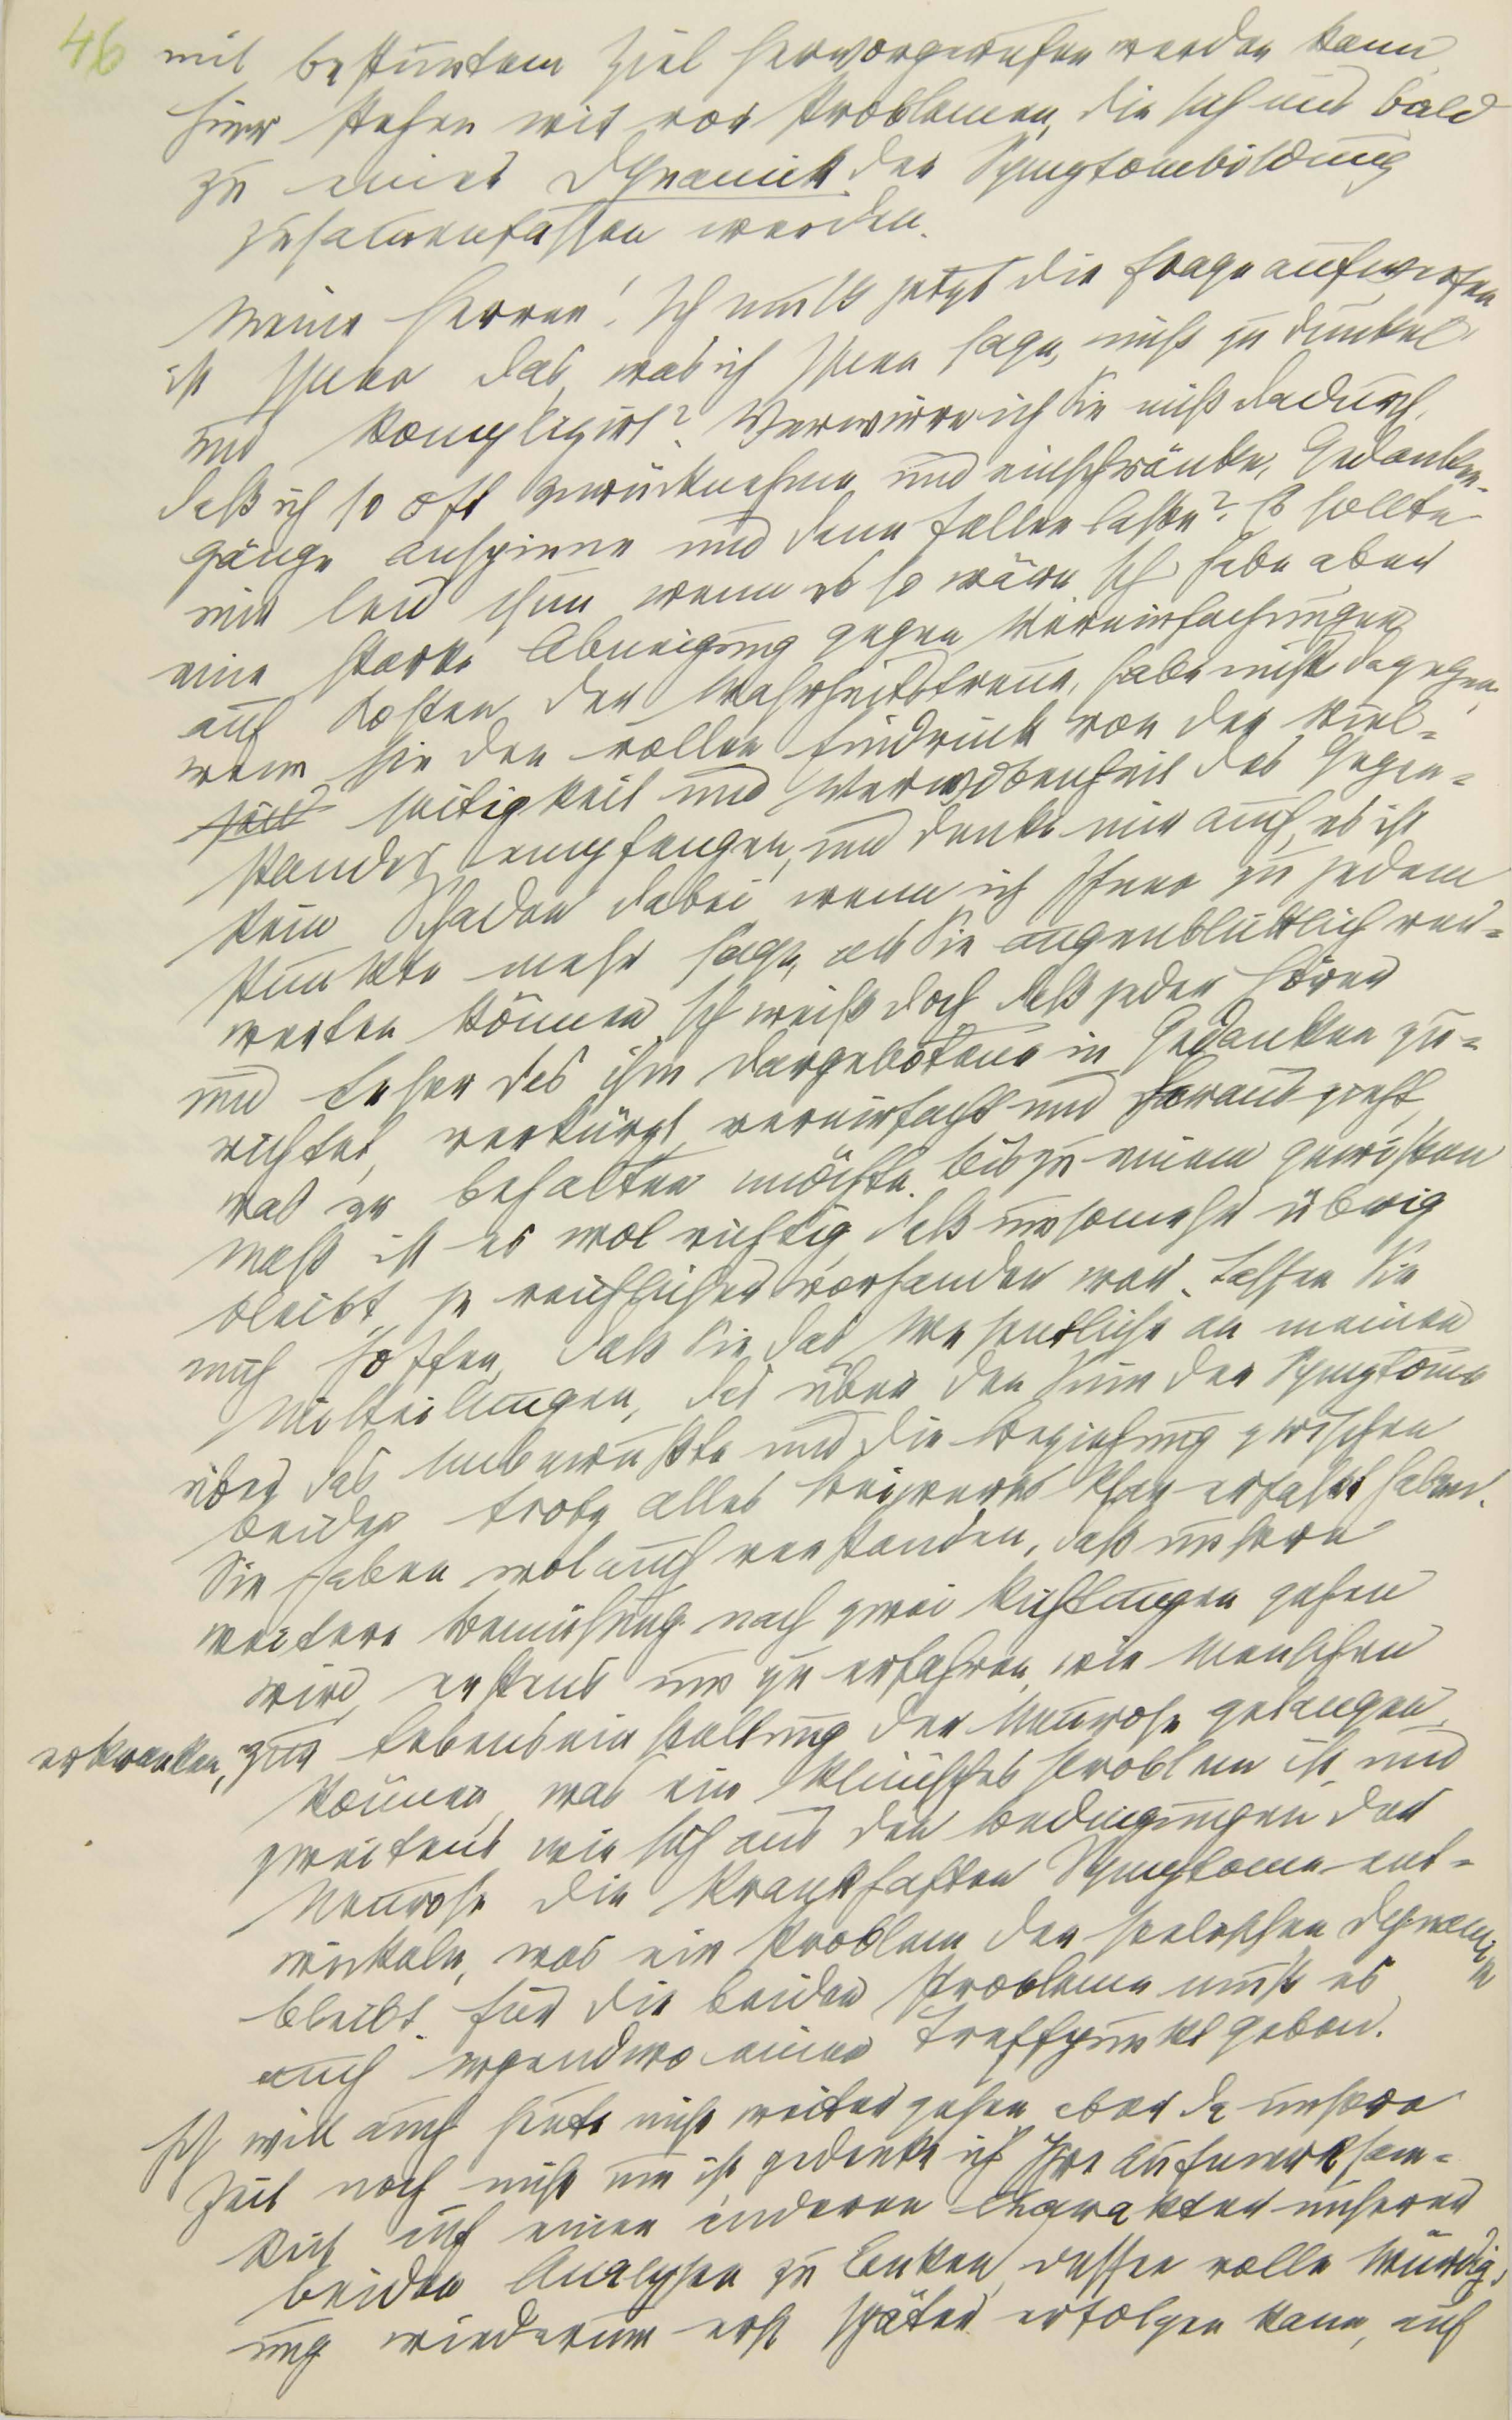 46
mit bestimtem Ziel hervorgerufen werden kann
hier stehen wir vor Problemen, die sich uns bald
zu einer Dynamik der Symptombildung
zusamenfassen werden.
Meine Herren! Ich muß jetzt die Frage aufwerfen
ist Ihnen das, was ich Ihnen sage, nicht zu dunkel
und komplizirt? Verwirre ich Sie nicht dadurch,
daß ich so oft zurücknehme und einschränke, Gedanken-
gänge anspinne und dann fallen lasse? Es sollte
mir leid thun wenn es so wäre Ich habe aber
eine starke Abneigung gegen Vereinfachungen
auf Kosten der Wahrheitstreue, habe nichts dagegen,
wenn Sie den vollen Eindruck von der Viel=
seitigkeit und Verwobenheit des Gegen=
standes empfangen, und denke mir auch, es ist
kein Schaden dabei wenn ich Ihnen zu jedem
Punkte mehr sage, als Sie augenblicklich ver=
werten können Ich weiß doch daß jeder Hörer
und Leser das ihm dargebotene in Gedanken zu=
richtet, verkürzt, vereinfacht und herauszieht,
was er behalten möchte. Bis zu einem gewissen
Maß ist es wol richtig daß umsomehr übrig
bleibt, je reichlicher vorhanden war. Lassen Sie
mich hoffen, daß Sie das Wesentliche an meinen
Mitteilungen, das über den Sinn der Symptome
über das Unbewußte und die Beziehung zwischen
beiden trotz alles Beiwerks klar erfaßt haben.
Sie haben wol auch verstanden, daß unsere
weitere Bemühung nach zwei Richtungen gehen
wird, erstens um zu erfahren, wie Menschen
erkranken, zur Lebenseinstellung der Neurose gelangen
können, was ein klinisches Problem ist, und
zweitens wie sich aus den Bedingungen der
Neurose die krankhaften Symptome ent=
wickeln, was ein Problem der seelischen Dynamik
bleibt. Für die beiden Probleme muß es
auch irgendwo einen Treffpunkt geben.
Ich will auch heute nicht weiter gehen, aber da unsere
Zeit noch nicht um ist, gedenke ich Ihre Aufmerksam=
keit auf einen anderen Charakter unserer
beiden Analysen zu lenken, dessen volle Würdig=
ung wiederum erst später erfolgen kann, auf